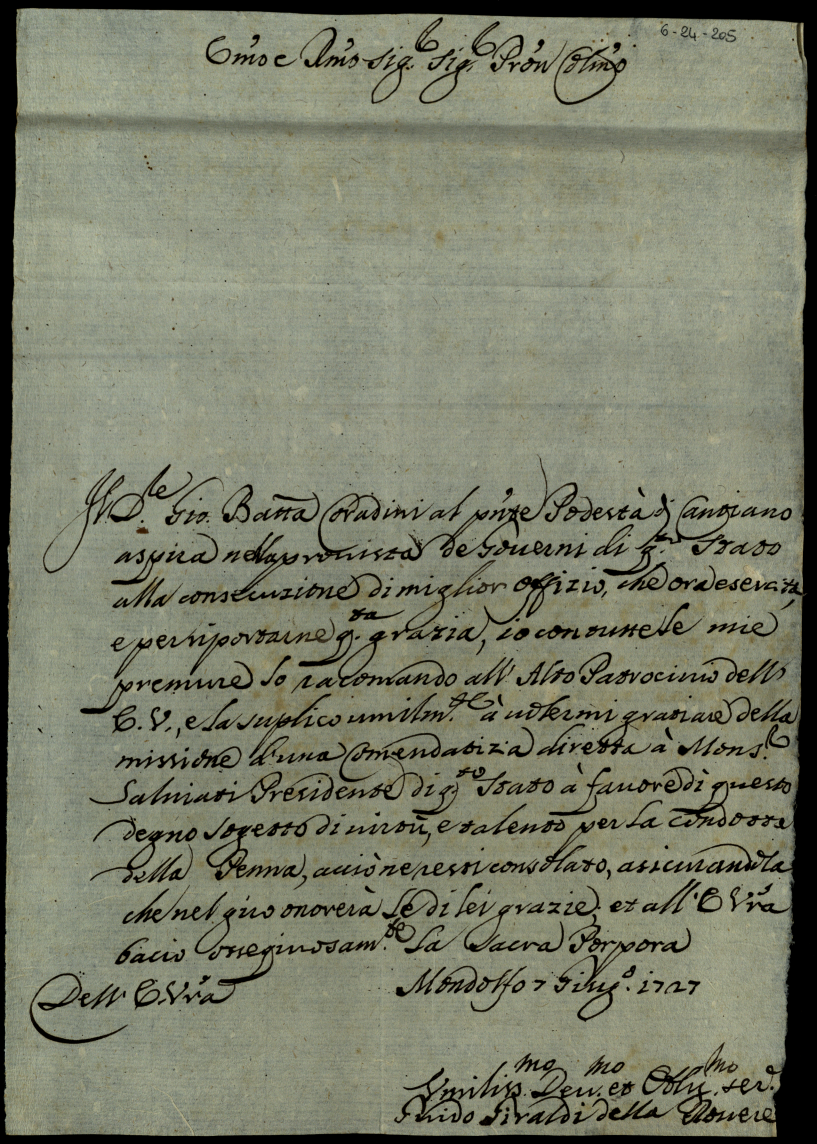 6-24-205
Emo e Rmo Sig.r Sig.r Pron Colmo
Il D.re Gio. Batta Coradini al pnte Podestà di Cantiano
aspira nella provista de Governi di q.to Stato
alla consecuzione di miglior offizio, che ora esercita,
e per riportarne q.ta grazia, io con tutte le mie
premure lo racomando all' Alto Patrocinio dell'
E. V., e la suplico umilm.te à volermi graziare della
missione d'una Comendatizia diretta à Mons.r
Salviati Presidente di q.to Stato à favore di questo
degno sogetto di virtù, e talento per la condotta
della Penna, acciò ne resti consolato, asicurandola
che nel giro onorerà le di lei grazie; et all' E Vra
bacio ossequiosam.te La Sacra Porpora
Dell' E. Vra
Mondolfo 7 Giug.o 1727
Vmiliss.mo Deu.mo et Obli.mo ser.e
Guido Giraldi della Rouere